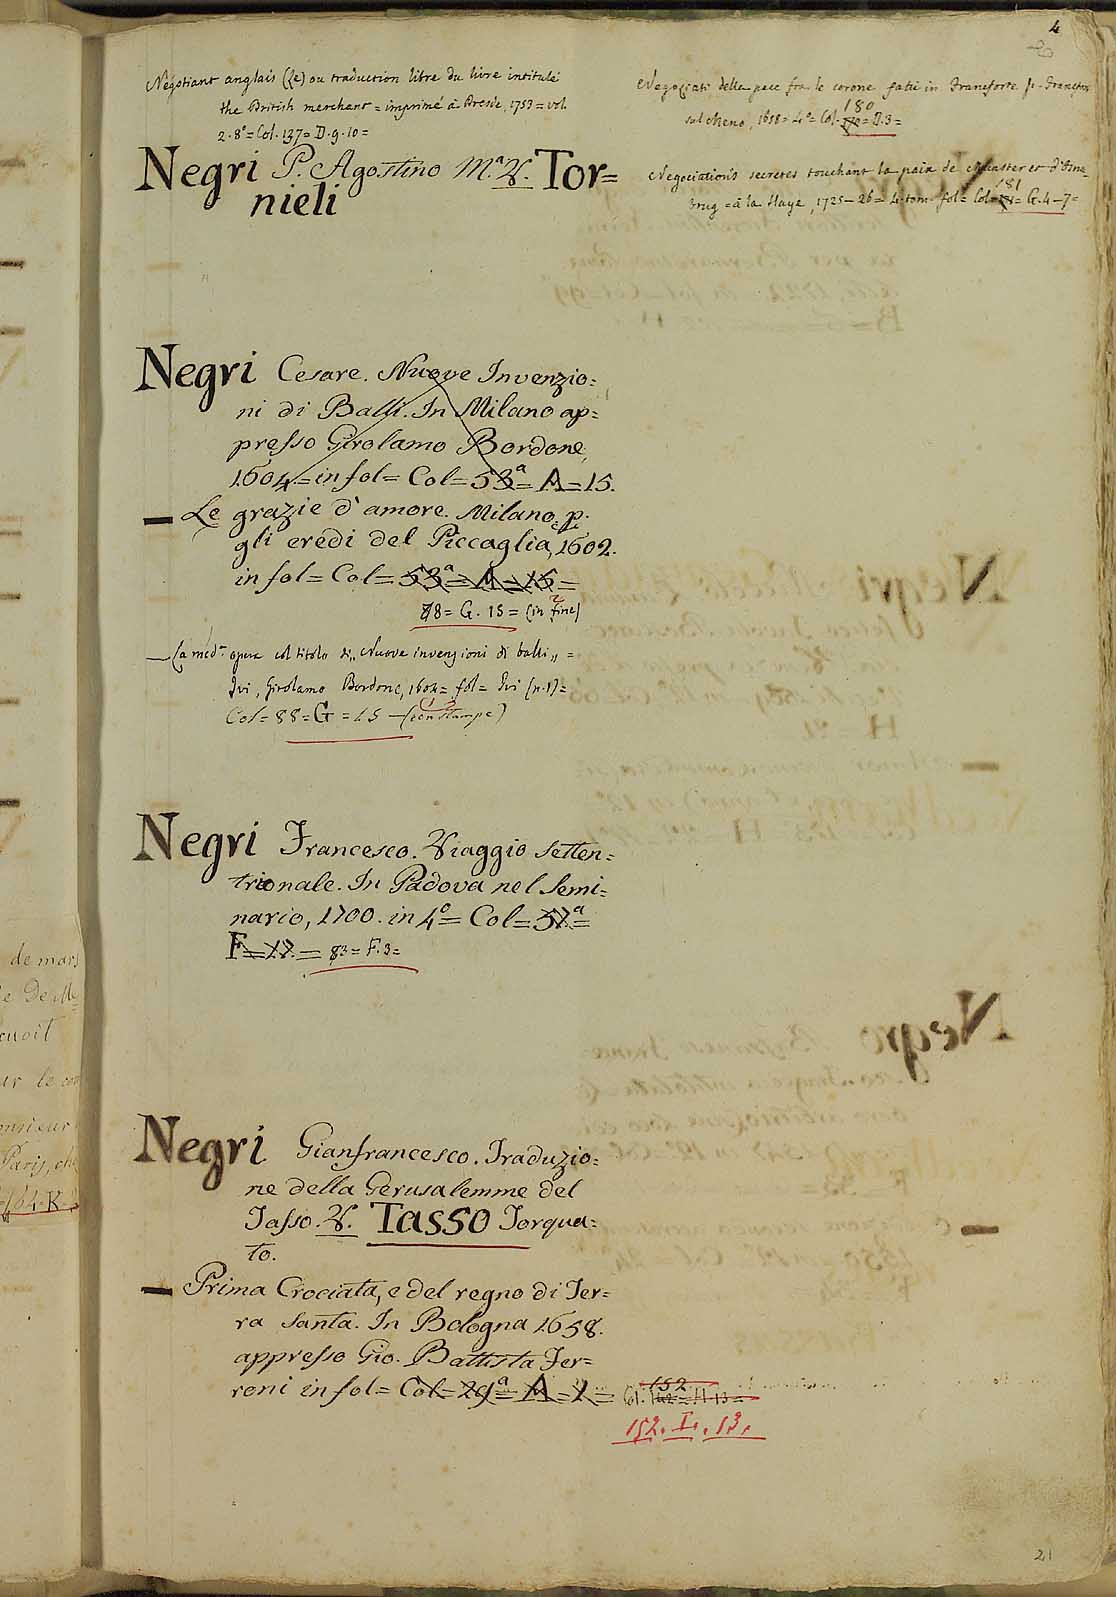 4
Négotiant anglais (Le) ou traduction libre du livre intitulé
the British merchant = imprimé à Dresde, 1753 = vol.
2. 8° = Col. 137 = D. 9. 10 =
Negri P. Agostino M.ª V. Tor=
nieli
Negri Cesare. Nuove Invenzio=
ni di Balli. In Milano ap=
presso Girolamo Bordone,
1604 = in fol = Col = 53ª = A = 15.
— Le grazie d'amore. Milano, p.
gli eredi del Piccaglia, 1602.
in fol = Col = 53ª = A = 15 =
88 = G. 15 = (in fine)
2
— La med.ª opera col titolo di „ Nuove invenzioni di balli „ =
Ivi, Girolamo Bordone, 1604 = fol = Ivi (n.1) =
Col = 88 = G = 15 — (con stampe)
Negri Francesco. Viaggio setten=
trionale. In Padova nel Semi=
nario, 1700. in 4° = Col = 57.ª =
F = 17. = 83 = F. 3 =
Negri Gianfrancesco. Traduzio=
ne della Gerusalemme del
Tasso. V. Tasso Torqua=
to.
— Prima Crociata, e del regno di Ter=
ra Santa. In Bologna 1658.
appresso Gio. Battista Fer=
roni in fol = Col = 29ª = A = 1 =
152
Col. 142 = H. 13 =
152. I. 13.
Negoziati della pace fra le corone fatti in Francforte p. Francfort
sul Meno, 1658 = 4° = Col. 180 = D. 3 =
Negociations secretes touchant la paix de Munster et d'Osna_
brug = à la Haye, 1725 — 26 = 4. tom. fol = Col = 181 = G. 4 — 7 =
de mars
cuoit
ur le
onsieur
Paris, ch
164. K.
21